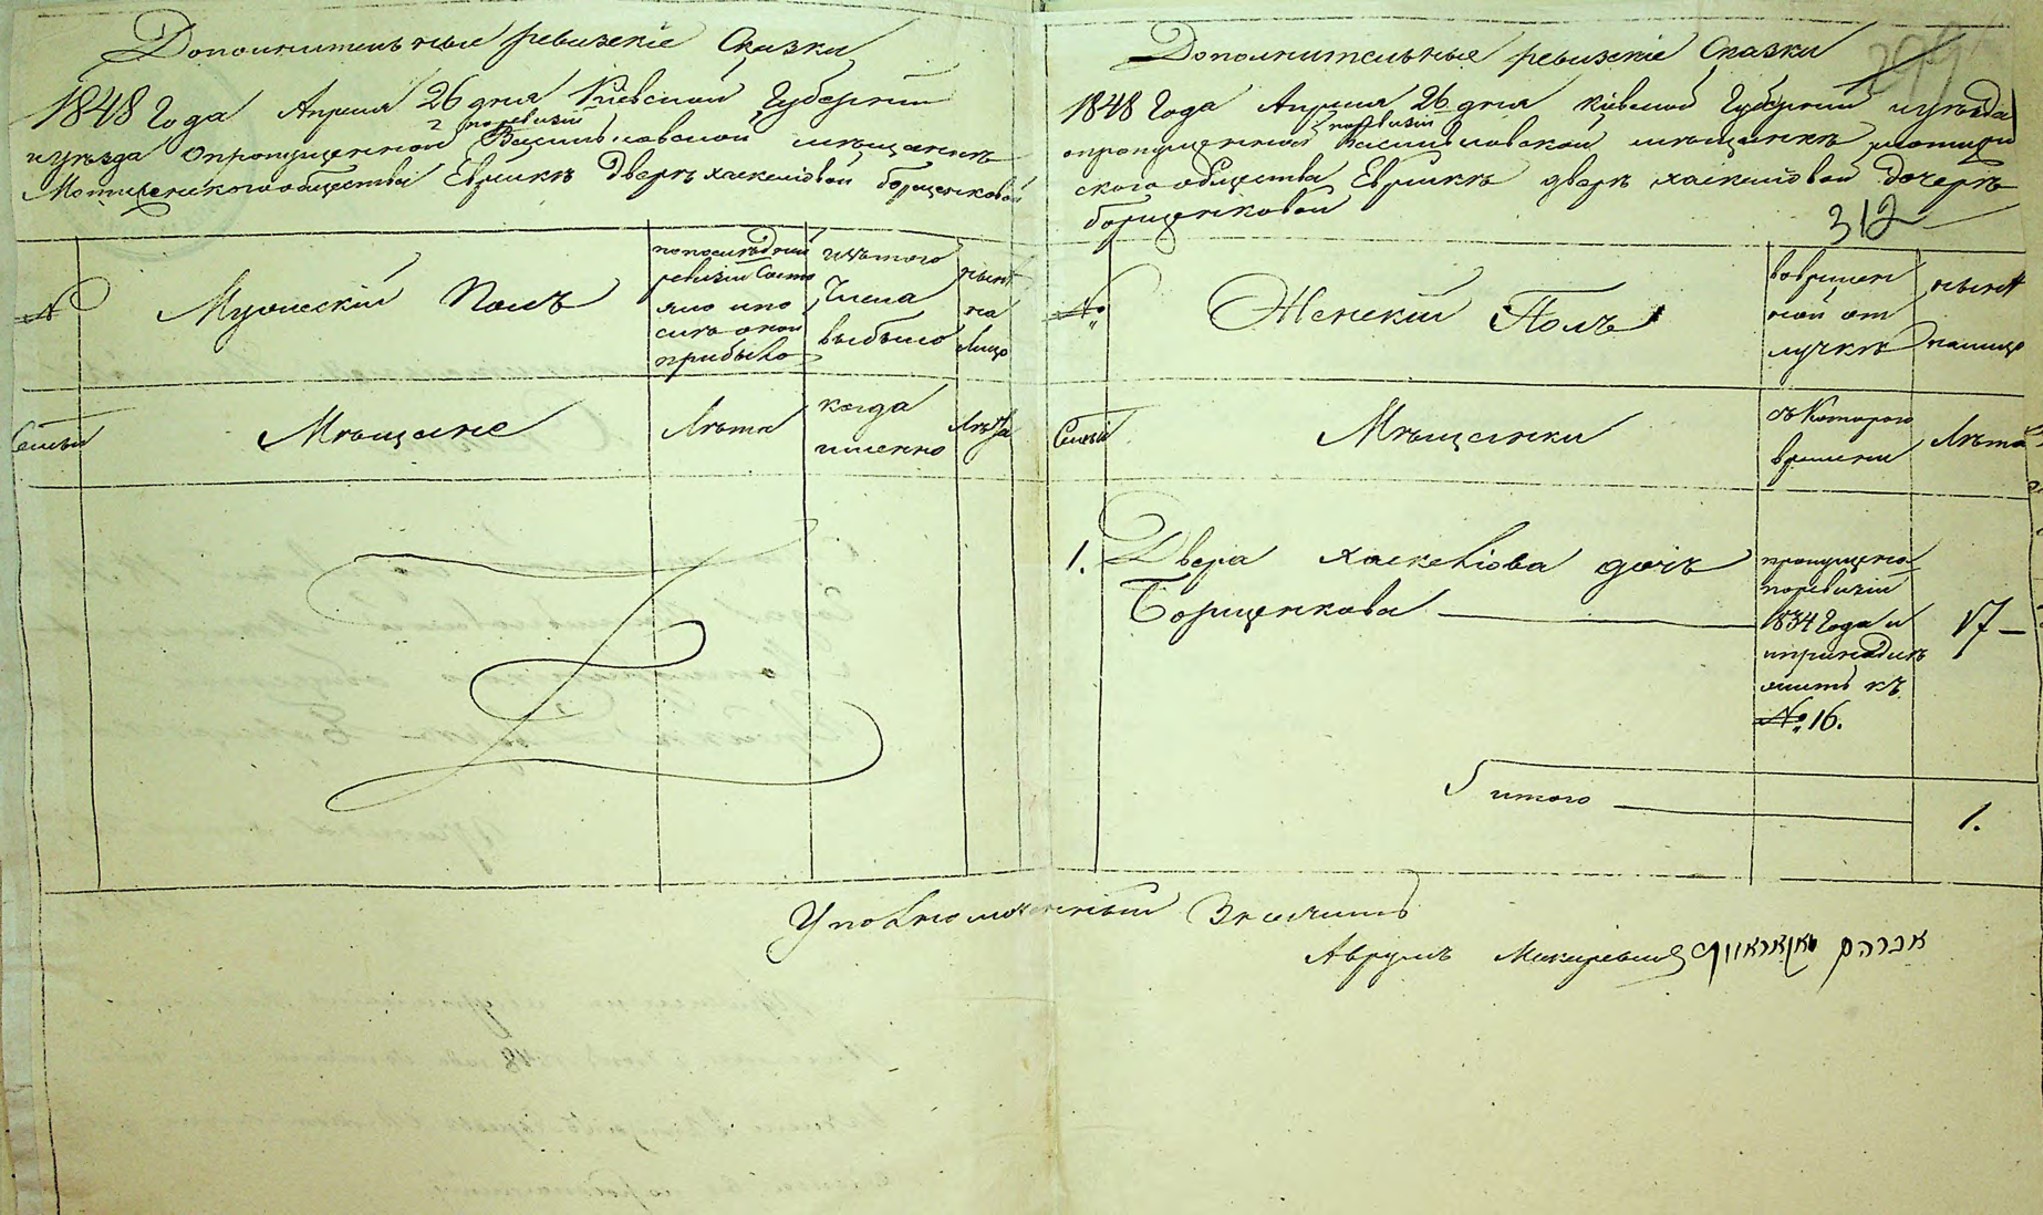 Дополнительные ревизскіе Сказки
1848 Года Апреля 26 дня Киевской Губерніи
и уезда о пропущенной по ревизіи Васильковской мещанке
Мотижинского общества Еврейке Двере Хаскеліовой борщенковой
№ Мужескій Полъ
по последней ревизіи состояло и после оной прибыло
изъ того Числа выбыло
ныне на Лицо
Семьи Мещане Лета когда именно Лета
Дополнительные ревизскіе Сказки
299
1848 Года Апреля 26 дня Кіевской Губерніи и уезда
о пропущенной по ревизіи Васильковской мещанке
ского общества Еврейке Двере Хаскеліовой Дочере
борщенковой
312
№ Женскій Полъ
во временной отлучке
ныне налицо
Семьи Мещанки съ Которого времени Лета
1. Двера Хаскеліова дочь
Борщенкова
пропущена
по ревизіи
1834 Года и
принадлежитъ къ
№ 16.
17
итого 1.
Уполномоченный
Аврумъ אברהם